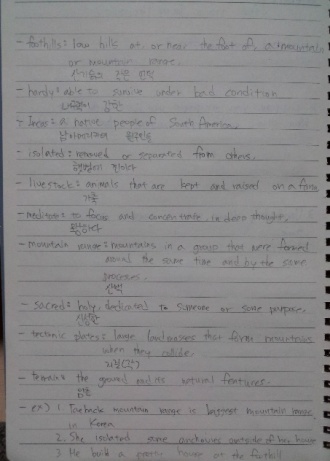 - foothills: low hills at or near the foot of a mountain
or mountain range.
- hardy: able to survive under bad condition
- Incas: a native people of South America.
- isolated: removed or separated from others.
- livestock: animals that are kept and raised on a farm
가축
- meditate: to focus and concentrate in deep thought.
- mountain range: mountains in a group that were formed
around the same time and by the same
processes.
산맥
- sacred: holy, dedicated to someone or some purpose.
- tectonic plates: large landmasses that form mountains
when they collide.
- terrain: the ground and its natural features.
- ex) 1. Taeback mountain range is mountain range
in Korea
2. She isolated some outside of her house
3. He build a house on the foothill